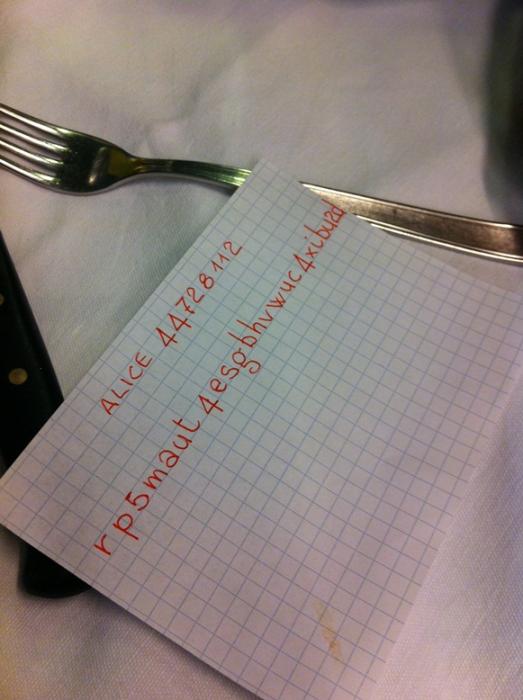 ALICE 44728112
rp5maut4esgbhvwuc4xibu2d